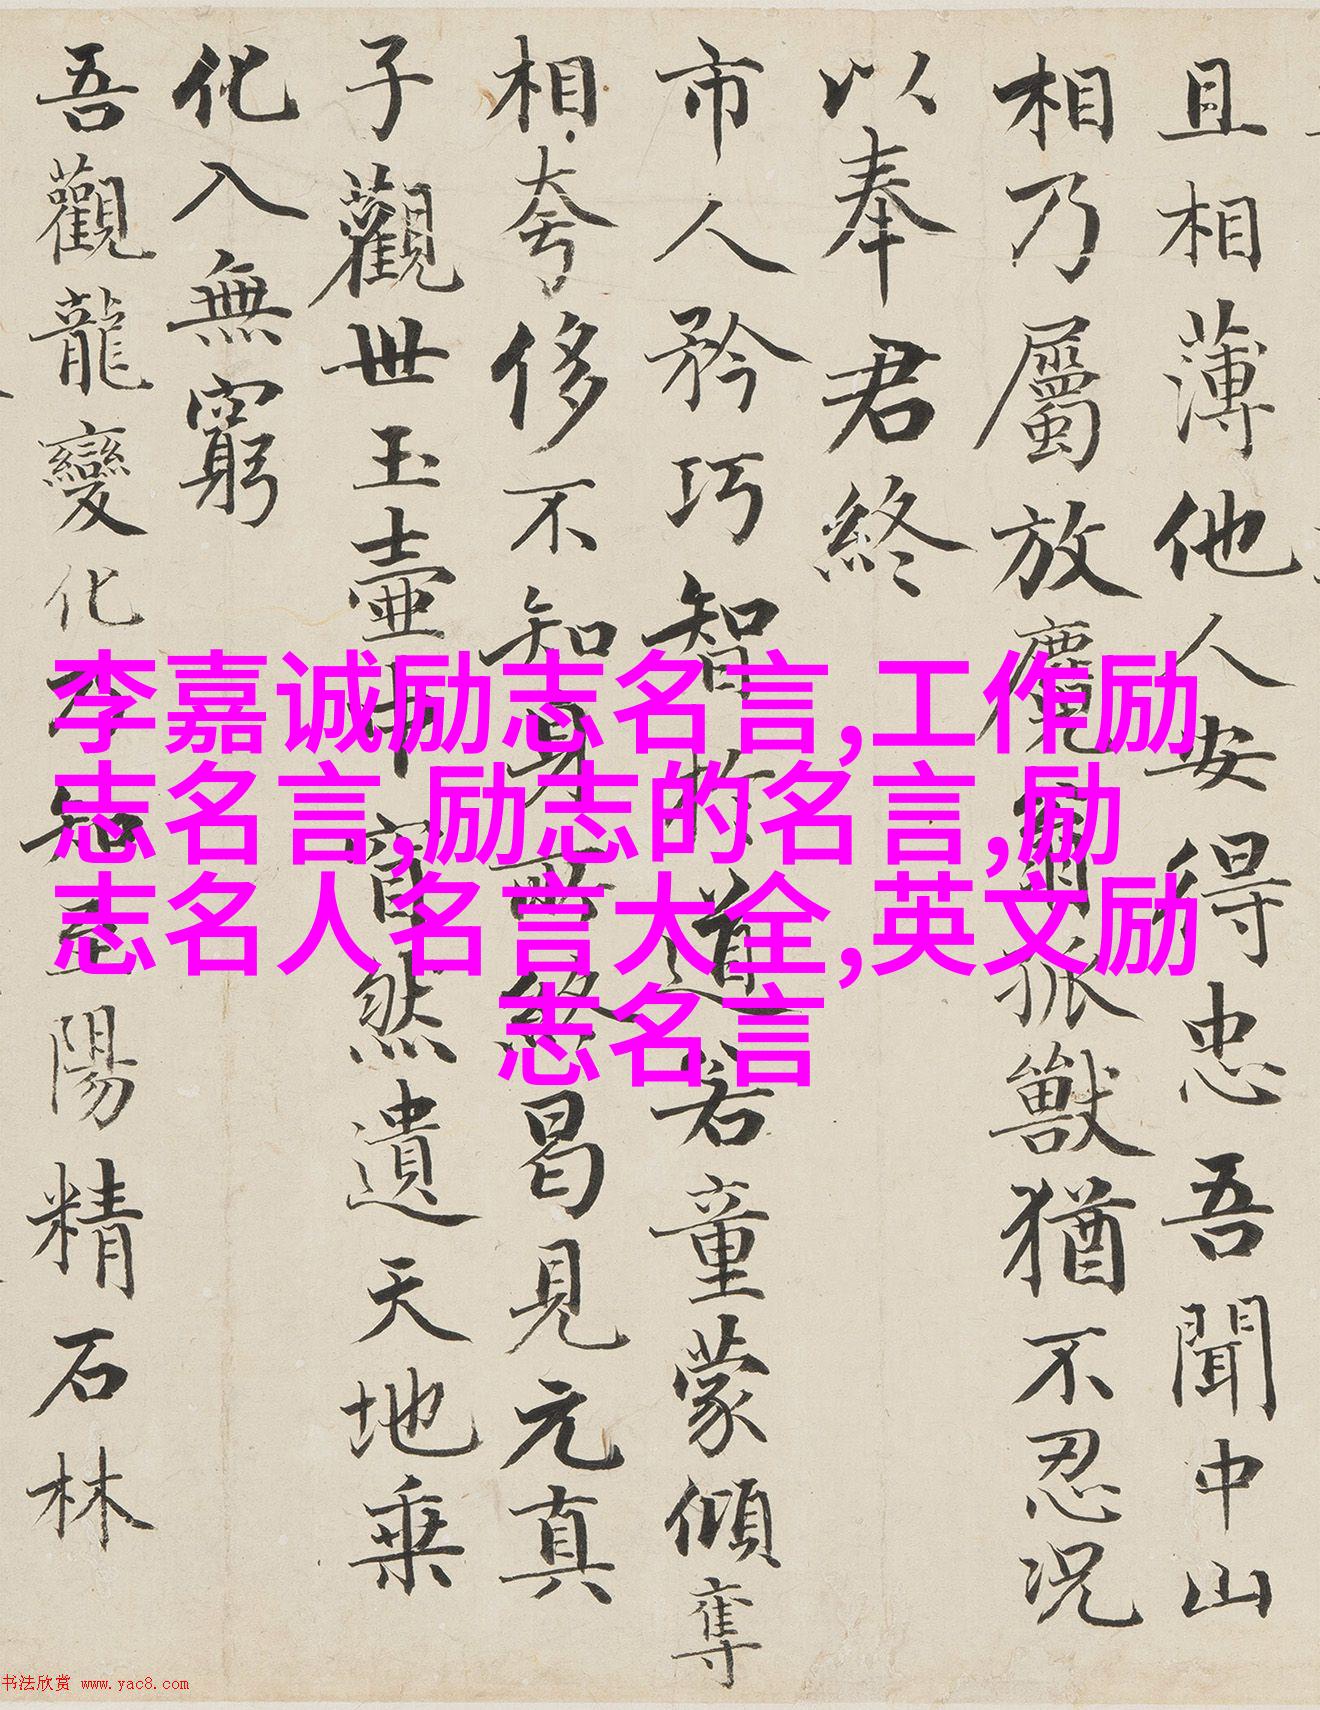 且相薄他人安得忠吾聞中山
相乃屬放麑翁孤獸猶不忍況
以奉君終
市人矜巧智於道若童蒙傾奪
相夸侈不知身所終曷見元真
子觀世玉壺中窅然遺天地乘
化入無窮
吾觀龍變化乃知至陽精石林
李嘉诚励志名言,工作励
志名言,励志的名言,励
志名人名言大全,英文励
志名言
书法欣赏 www.yac8.com